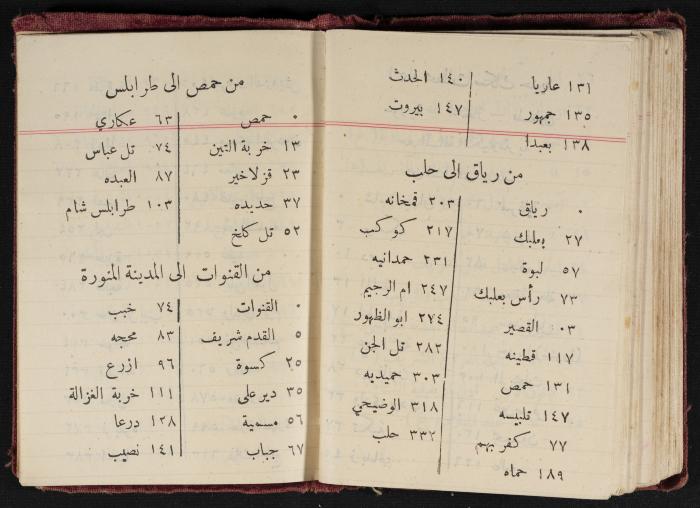 ١٣١ عاريا
١٣٥ جمهور
١٣٨ بعبدا
١٤٠ الحدث
١٤٧ بيروت
من رياق الى حلب
٠ رياق
٢٧ بعلبك
٥٧ لبوة
٧٣ رأس بعلبك
٠٣ القصير
١١٧ قطينه
١٣١ حمص
١٤٧ تلبيسه
٧٧ كفربهم
١٨٩ حماه
٢٠٣ قمخانه
٢١٧ كوكب
٢٣١ حمدانيه
٢٤٧ ام الرجيم
٢٧٤ ابو الظهور
٢٨٢ تل الجن
٣٠٣ حميديه
٣١٨ الوضيحي
٣٣٢ حلب
من حمص الى طرابلس
٠ حمص
١٣ خربة التين
٢٣ قزلاخير
٣٧ حديده
٥٢ تل كلخ
٦٣ عكاري
٧٤ تل عباس
٨٧ العبده
١٠٣ طرابلس شام
من القنوات الى المدينة المنورة
٠ القنوات
٥ القدم شريف
٢٥ كسوة
٣٥ دير على
٥٦ مسمية
٦٧ جباب
٧٤ خبب
٨٣ محجه
٩٦ ازرع
١١١ خربة الغزالة
١٢٨ درعا
١٤١ نصيب